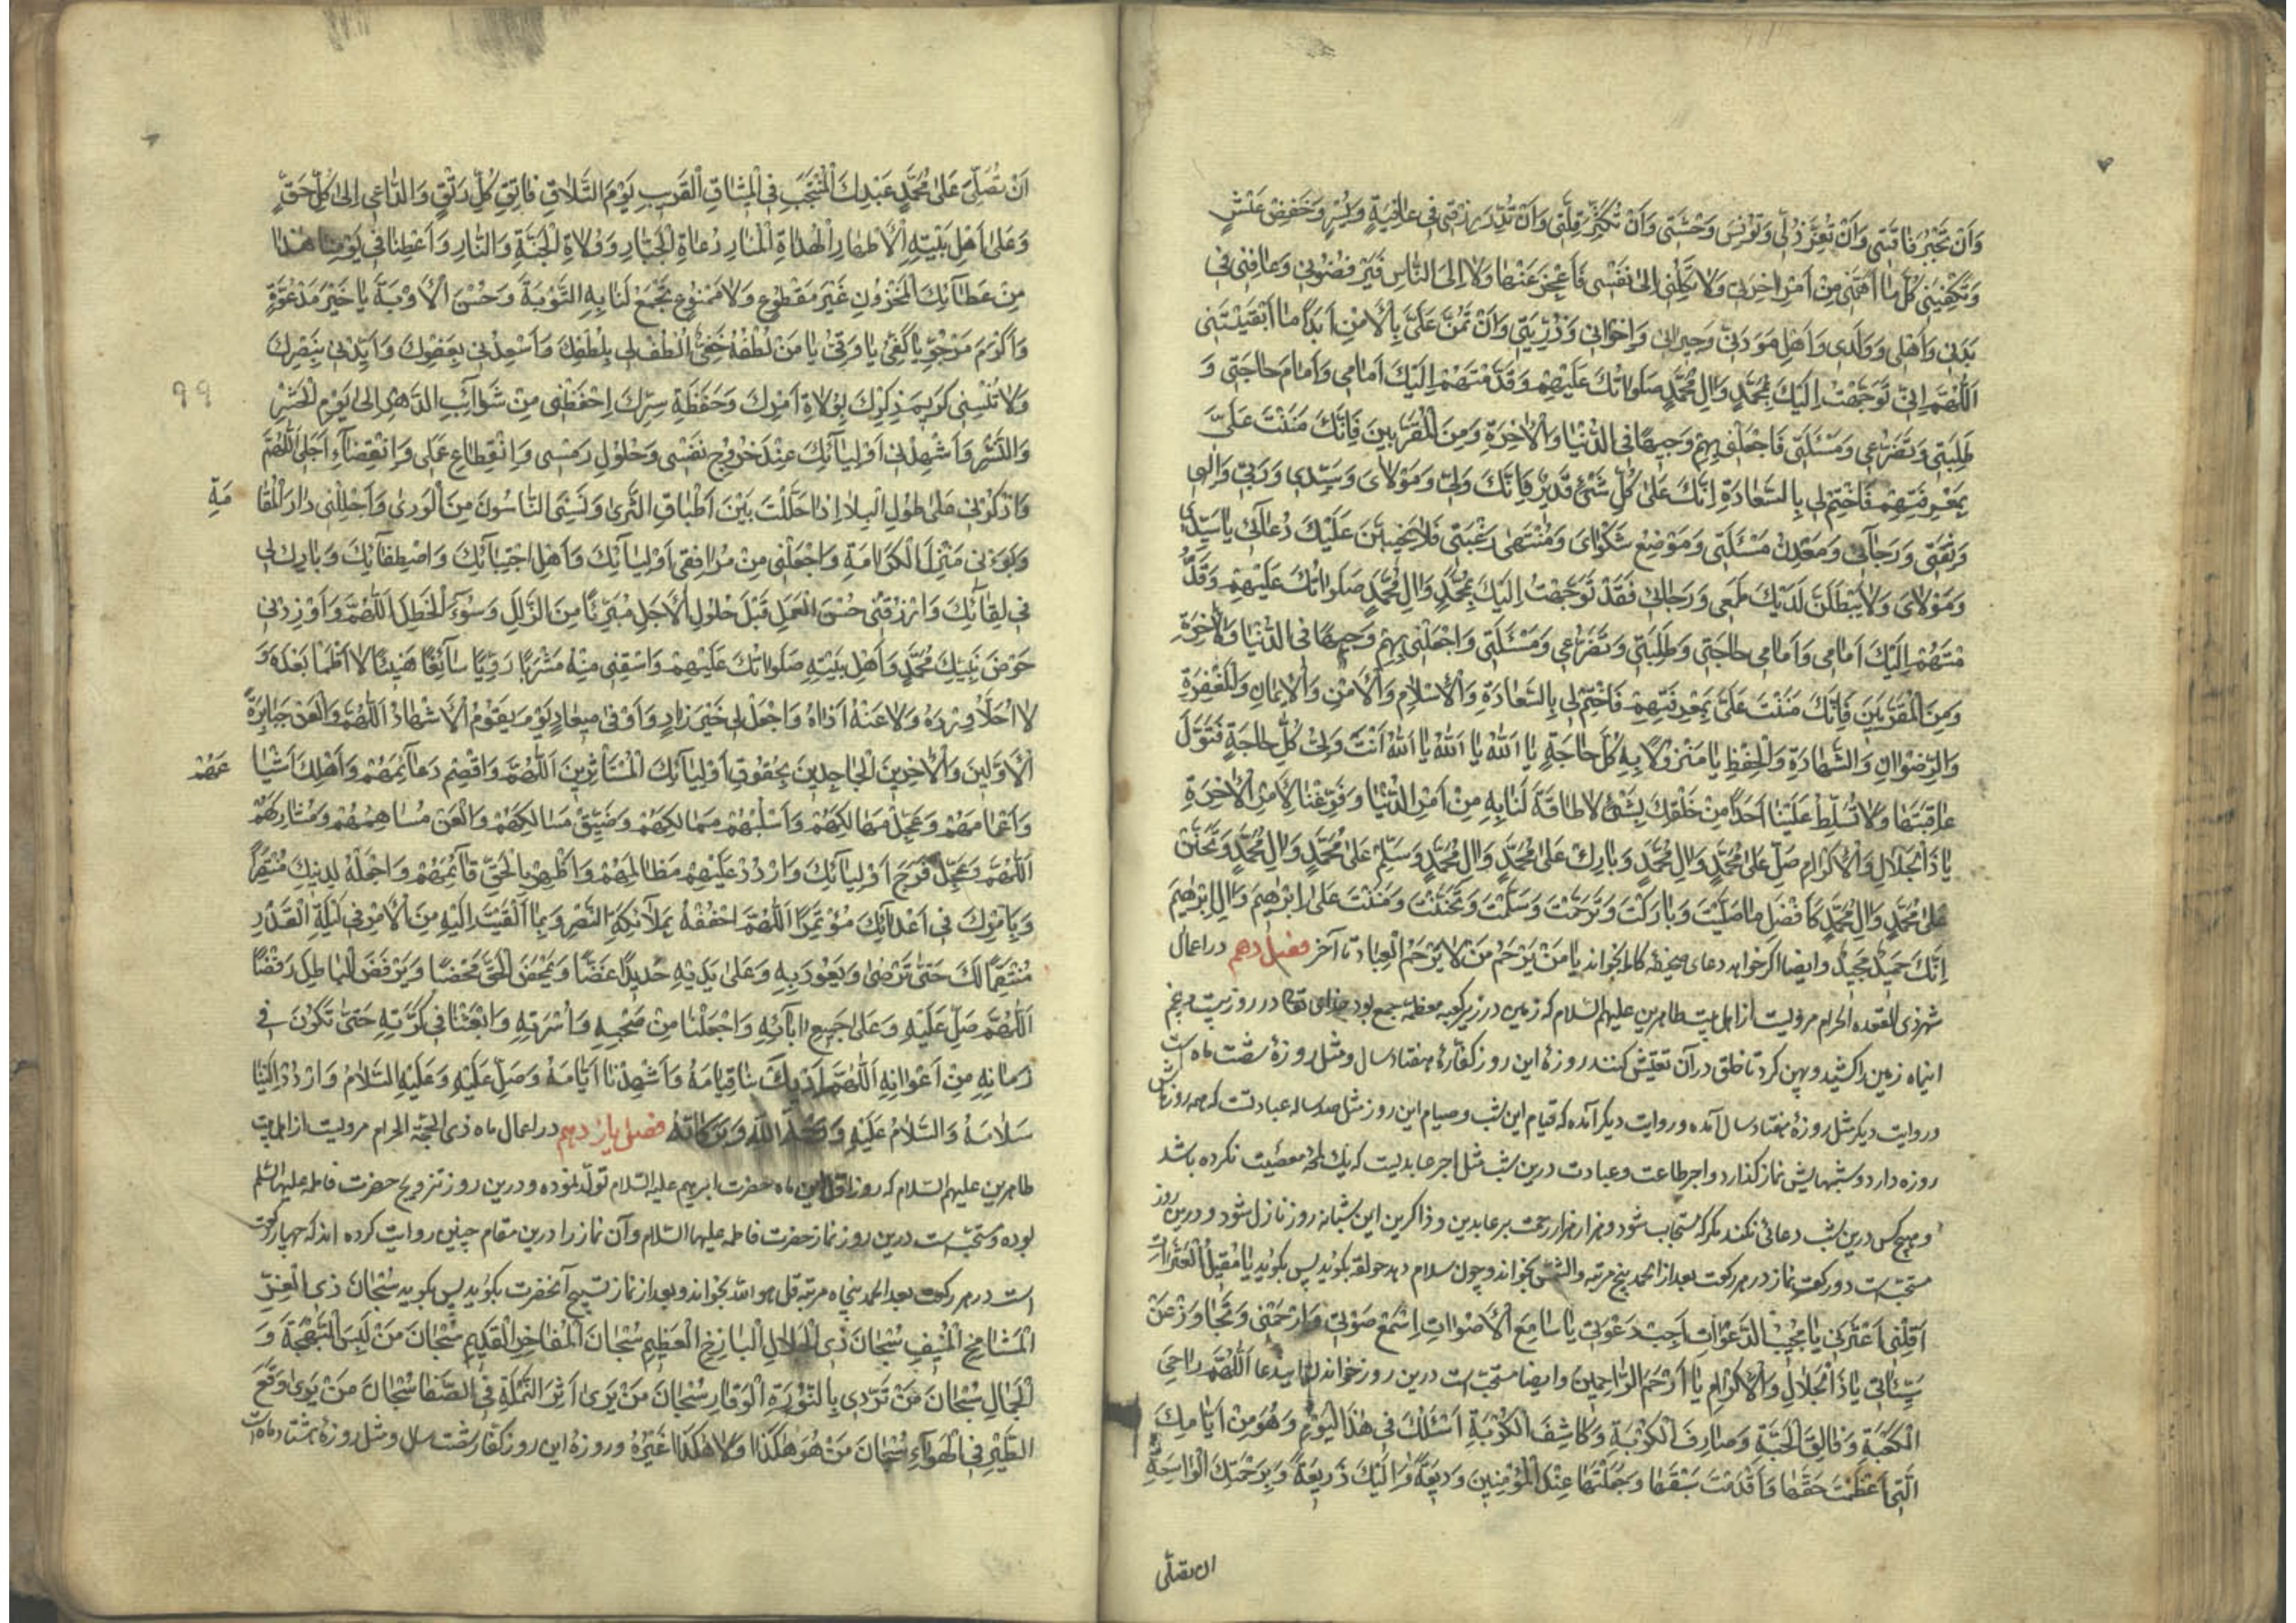 وَاَنْ تَجْبُرَ فَاقَتِی وَاَنْ تُعِزَّ ذُلِّی وَتُؤْنِسَ وَحْشَتِی وَاَنْ تُکْثِرَ قِلَّتِی وَاَنْ تُدِرَّ رِزْقِی فِی عَافِیَةٍ وَیُسْرٍ وَخَفْضِ عَیْشٍ
وَتَکْفِیَنِی کُلَّ مَا اَهَمَّنِی مِنْ اَمْرِ اٰخِرَتِی وَلَا تَکِلْنِی اِلٰی نَفْسِی فَاَعْجِزَ عَنْهَا وَلَا اِلَی النَّاسِ فَیَرْفُضُونِی وَعَافِنِی فِی
بَدَنِی وَاَهْلِی وَوَلَدِی وَاَهْلِ مَوَدَّتِی وَجِیرَانِی وَاِخْوَانِی وَذُرِّیَّتِی وَاَنْ تَمُنَّ عَلَیَّ بِالْاَمْنِ اَبَدًا مَا اَبْقَیْتَنِی
اَللّٰهُمَّ اِنِّی تَوَجَّهْتُ اِلَیْکَ بِمُحَمَّدٍ وَاٰلِ مُحَمَّدٍ صَلَوَاتُکَ عَلَیْهِمْ وَقَدَّمْتُهُمْ اِلَیْکَ اَمَامِی وَاَمَامَ حَاجَتِی وَ
طَلِبَتِی وَتَضَرُّعِی وَمَسْئَلَتِی فَاجْعَلْنِی بِهِمْ وَجِیهًا فِی الدُّنْیَا وَالْاٰخِرَةِ وَمِنَ الْمُقَرَّبِینَ فَاِنَّکَ مَنَنْتَ عَلَیَّ
بِمَعْرِفَتِهِمْ فَاخْتِمْ لِی بِالسَّعَادَةِ اِنَّکَ عَلٰی کُلِّ شَیْءٍ قَدِیرٌ فَاِنَّکَ وَلِیِّی وَمَوْلَایَ وَسَیِّدِی وَرَبِّی وَاِلٰهِی
وَثِقَتِی وَرَجَآئِی وَمَعْدِنُ مَسْئَلَتِی وَمَوْضِعُ شَکْوَایَ وَمُنْتَهٰی رَغْبَتِی فَلَا یَخِیبَنَّ عَلَیْکَ دُعَائِی یَا سَیِّدِی
وَمَوْلَایَ وَلَا یَبْطُلَنَّ لَدَیْکَ طَمَعِی وَرَجَائِی فَقَدْ تَوَجَّهْتُ اِلَیْکَ بِمُحَمَّدٍ وَاٰلِ مُحَمَّدٍ صَلَوَاتُکَ عَلَیْهِمْ وَقَدَّ
مْتُهُمْ اِلَیْکَ اَمَامِی وَاَمَامِی حَاجَتِی وَطَلِبَتِی وَتَضَرُّعِی وَمَسْئَلَتِی وَاجْعَلْنِی بِهِمْ وَجِیهًا فِی الدُّنْیَا وَالْاٰخِرَةِ
وَمِنَ الْمُقَرَّبِینَ فَاِنَّکَ مَنَنْتَ عَلَیَّ بِمَعْرِفَتِهِمْ فَاخْتِمْ لِی بِالسَّعَادَةِ وَالْاِسْلَامِ وَالْاَمْنِ وَالْاِیمَانِ وَالْمَغْفِرَةِ
وَالرِّضْوَانِ وَالشَّهَادَةِ وَالْحِفْظِ یَا مَنْزُولًا بِهِ کُلُّ حَاجَةٍ یَا اَللّٰهُ یَا اَللّٰهُ یَا اَللّٰهُ اَنْتَ وَلِیُّ کُلِّ حَاجَةٍ فَتَوَلَّ
عَاقِبَتَهَا وَلَا تُسَلِّطْ عَلَیْنَا اَحَدًا مِنْ خَلْقِکَ بِشَیْءٍ لَا طَاقَةَ لَنَا بِهِ مِنْ اَمْرِ الدُّنْیَا وَفَرِّغْنَا لِاَمْرِ الْاٰخِرَةِ
یَا ذَا الْجَلَالِ وَالْاِکْرَامِ صَلِّ عَلٰی مُحَمَّدٍ وَاٰلِ مُحَمَّدٍ وَبَارِکْ عَلٰی مُحَمَّدٍ وَاٰلِ مُحَمَّدٍ وَسَلِّمْ عَلٰی مُحَمَّدٍ وَاٰلِ مُحَمَّدٍ وَتَحَنَّنْ
عَلٰی مُحَمَّدٍ وَاٰلِ مُحَمَّدٍ کَاَفْضَلِ مَا صَلَّیْتَ وَبَارَکْتَ وَتَرَحَّمْتَ وَسَلَّمْتَ وَتَحَنَّنْتَ وَمَنَنْتَ عَلٰی اِبْرٰهِیمَ وَاٰلِ اِبْرٰهِیمَ
اِنَّکَ حَمِیدٌ مَجِیدٌ وایضا اکر خواهد دعای صحیفه کامله بخواند یَا مَنْ یَرْحَمُ مَنْ لَا یَرْحَمُهُ الْعِبَادُ تا آخر فصل دهم در اعمال
شهر ذی القعده الحرام مرویست از اهل بیت طاهرین علیهم السلام که زمین در زیر کعبه معظمه جمع بود خدای تعالی در روز بیست و پنجم
اینماه زمین را کشید و پهن کرد تا خلق در آن تعیّش کنند روزهٔ این روز کفّارهٔ هفتاد سال و مثل روزهٔ شصت ماه است
و روایت دیکر مثل روزهٔ هفتاد سال آمده و روایت دیکر آمده که قیام این شب و صیام این روز مثل صد ساله عبادتست که همه روزهاش
روزه دارد و شبهایش نماز کذارد و اجر طاعت و عبادت درین شب مثل اجر عابدیست که یک لمحه معصیت نکرده باشد
و هیچ کس درین شب دعائی نکند مکر که مستجاب شود و هزار هزار رحمت بر عابدین و ذاکرین این شبانه روز نازل شود و درین روز
مستحبّ است دو رکعت نماز در هر رکعت بعد از الحمد پنج مرتبه والشمس بخواند و چون سلام دهد حولقه بکوید پس بکوید یَا مُقِیلَ الْعَثَرَاتِ
اَقِلْنِی عَثْرَتِی یَا مُجِیبَ الدَّعَوَاتِ اَجِبْ دَعْوَتِی یَا سَامِعَ الْاَصْوَاتِ اِسْمَعْ صَوْتِی وَارْحَمْنِی وَتَجَاوَزْ عَنْ
سَیِّئَاتِی یَا ذَا الْجَلَالِ وَالْاِکْرَامِ یَا اَرْحَمَ الرَّاحِمِینَ وایضا مستحبّ است درین روز خواند این دعا اَللّٰهُمَّ دَاحِیَ
الْکَعْبَةِ وَفَالِقَ الْحَبَّةِ وَصَارِفَ الْکُرْبَةِ وَکَاشِفَ الْکُرْبَةِ اَسْئَلُکَ فِی هٰذَا الْیَوْمِ وَهُوَ مِنْ اَیَّامِکَ
الَّتِی اَعْظَمْتَ حَقَّهَا وَاَقْدَمْتَ سَبْقَهَا وَجَعَلْتَهَا عِنْدَ الْمُؤْمِنِینَ وَدِیعَةً وَاِلَیْکَ ذَرِیعَةً وَبِرَحْمَتِکَ الْوَاسِعَةِ
ان تصلّی
اَنْ تُصَلِّیَ عَلٰی مُحَمَّدٍ عَبْدِکَ الْمُنْتَجَبِ فِی الْمِیثَاقِ الْقَرِیبِ یَوْمَ التَّلَاقِ فَاتِقِ کُلِّ رَتْقٍ وَالدَّاعِی اِلٰی کُلِّ حَقٍّ
وَعَلٰی اَهْلِ بَیْتِهِ الْاَطْهَارِ الْهُدَاةِ الْمَنَارِ دُعَاةِ الْجَبَّارِ وَوُلَاةِ الْجَنَّةِ وَالنَّارِ وَاَعْطِنَا فِی یَوْمِنَا هٰذَا
مِنْ عَطَآئِکَ الْمَخْزُونِ غَیْرَ مَقْطُوعٍ وَلَا مَمْنُوعٍ تَجْمَعُ لَنَا بِهِ التَّوْبَةَ وَحُسْنَ الْاَوْبَةِ یَا خَیْرَ مَدْعُوٍّ
وَاَکْرَمَ مَرْجُوٍّ یَا کَفِیُّ یَا وَفِیُّ یَا مَنْ لُطْفُهُ خَفِیٌّ اُلْطُفْ لِی بِلُطْفِکَ وَاَسْعِدْنِی بِعَفْوِکَ وَاَیِّدْنِی بِنَصْرِکَ
۹۹
وَلَا تُنْسِنِی کَرِیمَ ذِکْرِکَ بِوُلَاةِ اَمْرِکَ وَحَفَظَةِ سِرِّکَ اِحْفَظْنِی مِنْ شَوَآئِبِ الدَّهْرِ اِلٰی یَوْمِ الْحَشْرِ
وَالنَّشْرِ وَاَشْهِدْنِی اَوْلِیَآئَکَ عِنْدَ خُرُوجِ نَفْسِی وَحُلُولِ رَمْسِی وَانْقِطَاعِ عَمَلِی وَانْقِضَآءِ اَجَلِی اَللّٰهُمَّ
وَاذْکُرْنِی عَلٰی طُولِ الْبِلٰی اِذَا حَلَلْتُ بَیْنَ اَطْبَاقِ الثَّرٰی وَنَسِیَنِی النَّاسُونَ مِنَ الْوَرٰی وَاَحْلِلْنِی دَارَ الْمُقَا
مَةِ
وَبَوِّئْنِی مَنْزِلَ الْکَرَامَةِ وَاجْعَلْنِی مِنْ مُرَافِقِی اَوْلِیَآئِکَ وَاَهْلِ اجْتِبَآئِکَ وَاصْطِفَآئِکَ وَبَارِکْ لِی
فِی لِقَآئِکَ وَارْزُقْنِی حُسْنَ الْعَمَلِ قَبْلَ حُلُولِ الْاَجَلِ مُبَرِّئًا مِنَ الزَّلَلِ وَسُوٓءِ الْخَطَلِ اَللّٰهُمَّ وَاَوْرِدْنِی
حَوْضَ نَبِیِّکَ مُحَمَّدٍ وَاَهْلِ بَیْتِهِ صَلَوَاتُکَ عَلَیْهِمْ وَاسْقِنِی مِنْهُ مَشْرَبًا رَوِیًّا سَآئِغًا هَنِیئًا لَا اَظْمَأُ بَعْدَهُ وَ
لَا اُحَلَّأُ وِرْدَهُ وَلَا عَنْهُ اُذَادُ وَاجْعَلْهُ لِی خَیْرَ زَادٍ وَاَوْفٰی مِیعَادٍ یَوْمَ یَقُومُ الْاَشْهَادُ اَللّٰهُمَّ وَالْعَنْ جَبَابِرَةَ
الْاَوَّلِینَ وَالْاٰخِرِینَ الْجَاحِدِینَ بِحُقُوقِ اَوْلِیَآئِکَ الْمُسْتَأْثِرِینَ اَللّٰهُمَّ وَاقْصِمْ دَعَآئِمَهُمْ وَاَهْلِکْ اَشْیَا
عَهُمْ
وَعَجِّلْ مَهَالِکَهُمْ وَاسْلُبْهُمْ مَمَالِکَهُمْ وَضَیِّقْ مَسَالِکَهُمْ وَالْعَنْ مُسَاهِمَهُمْ وَمُشَارِکَهُمْ
اَللّٰهُمَّ وَعَجِّلْ فَرَجَ اَوْلِیَآئِکَ وَارْدُدْ عَلَیْهِمْ مَظَالِمَهُمْ وَاَظْهِرْ بِالْحَقِّ قَآئِمَهُمْ وَاجْعَلْهُ لِدِینِکَ مُنْتَصِرًا
وَبِاَمْرِکَ فِی اَعْدَآئِکَ مُؤْتَمِرًا اَللّٰهُمَّ احْفُفْهُ بِمَلَآئِکَةِ النَّصْرِ وَبِمَا اَلْقَیْتَ اِلَیْهِ مِنَ الْاَمْرِ فِی لَیْلَةِ الْقَدْرِ
مُنْتَقِمًا لَکَ حَتّٰی تَرْضٰی وَیَعُودَ بِهِ وَعَلٰی یَدَیْهِ جَدِیدًا غَضًّا وَیَمْحَضَ الْحَقَّ مَحْضًا وَیَرْفُضَ الْبَاطِلَ رَفْضًا
اَللّٰهُمَّ صَلِّ عَلَیْهِ وَعَلٰی جَمِیعِ اٰبَآئِهِ وَاجْعَلْنَا مِنْ صَحْبِهِ وَاُسْرَتِهِ وَابْعَثْنَا فِی کَرَّتِهِ حَتّٰی نَکُونَ فِی
زَمَانِهِ مِنْ اَعْوَانِهِ اَللّٰهُمَّ اَدْرِکْ بِنَا قِیَامَهُ وَاَشْهِدْنَا اَیَّامَهُ وَصَلِّ عَلَیْهِ وَعَلَیْهِ السَّلَامُ وَارْدُدْ اِلَیْنَا
سَلَامَهُ وَالسَّلَامُ عَلَیْهِ وَرَحْمَةُ اللّٰهِ وَبَرَکَاتُهُ فصل یازدهم در اعمال ماه ذی الحجّه الحرام مرویست از اهل بیت
طاهرین علیهم السلام که روز اول این ماه حضرت ابرهیم علیه السلام تولّد نموده و درین روز تزویج حضرت فاطمه علیها السلم
بوده و مستحبّ است درین روز نماز حضرت فاطمه علیها السلام و آن نماز را درین مقام چنین روایت کرده اند که چهار رکعت
است در هر رکعت بعد الحمد پنجاه مرتبه قل هو اللّه بخواند و بعد از نماز تسبیح آنحضرت بکوید پس بکوید سُبْحَانَ ذِی الْعِزِّ
الشَّامِخِ الْمُنِیفِ سُبْحَانَ ذِی الْجَلَالِ الْبَاذِخِ الْعَظِیمِ سُبْحَانَ الْمُفَاخِرِ الْقَدِیمِ سُبْحَانَ مَنْ لَبِسَ الْبَهْجَةَ وَ
الْجَمَالِ سُبْحَانَ مَنْ تَرَدّٰی بِالنُّورَةِ الْوَقَارِ سُبْحَانَ مَنْ یَرٰی اَثَرَ النَّمْلَةِ فِی الصَّفَا سُبْحَانَ مَنْ یَرٰی وَقْعَ
الطَّیْرِ فِی الْهَوَآءِ سُبْحَانَ مَنْ هُوَ هٰکَذَا وَلَا هٰکَذَا غَیْرُهُ و روزهٔ این روز کفّار شصت سال و مثل روزهٔ هشتاد ماه است